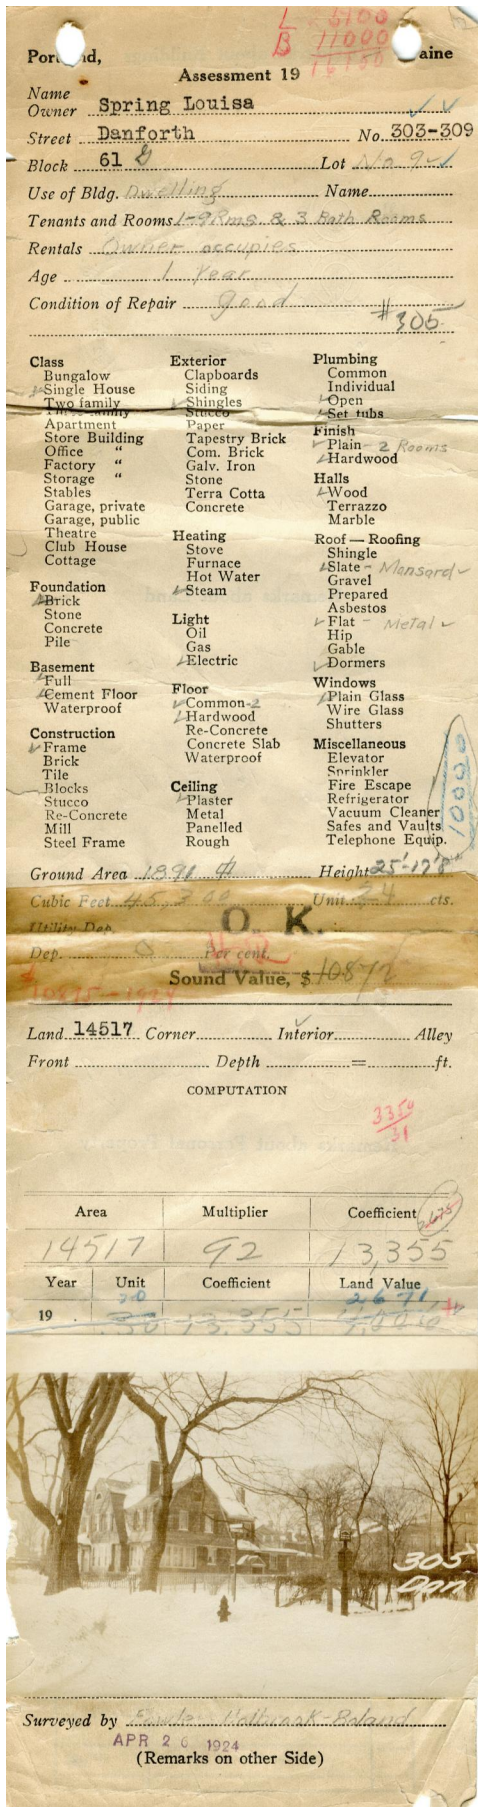 L 5100
B 11000
16100
Portland, Maine
Assessment 19
Name
Owner Spring Louisa
Street Danforth No. 303-309
Block 61 G Lot No 9
Use of Bldg. Dwelling Name
Tenants and Rooms 1-9 Rms. & 3 Bath Rooms
Rentals Owner occupies
Age 1 Year
Condition of Repair good
#305
Class
Bungalow
Single House
Two family
Three family
Apartment
Store Building
Office "
Factory "
Storage "
Stables
Garage, private
Garage, public
Theatre
Club House
Cottage
Foundation
Brick
Stone
Concrete
Pile
Basement
Full
Cement Floor
Waterproof
Construction
Frame
Brick
Tile
Blocks
Stucco
Re-Concrete
Mill
Steel Frame
Exterior
Clapboards
Siding
Shingles
Stucco
Paper
Tapestry Brick
Com. Brick
Galv. Iron
Stone
Terra Cotta
Concrete
Heating
Stove
Furnace
Hot Water
Steam
Light
Oil
Gas
Electric
Floor
Common-2
Hardwood
Re-Concrete
Concrete Slab
Waterproof
Ceiling
Plaster
Metal
Panelled
Rough
Plumbing
Common
Individual
Open
Set tubs
Finish
Plain - 2 Rooms
Hardwood
Halls
Wood
Terrazzo
Marble
Roof — Roofing
Shingle
Slate - Mansard
Gravel
Prepared
Asbestos
Flat - Metal
Hip
Gable
Dormers
Windows
Plain Glass
Wire Glass
Shutters
Miscellaneous
Elevator
Sprinkler
Fire Escape
Refrigerator
Vacuum Cleaner
Safes and Vaults
Telephone Equip.
10000
Ground Area 1891 Height 25'-17'8"
Cubic Feet 45300 Unit 24 cts.
Utility Dep.
O. K.
Dep. 0 Per cent.
Sound Value, $ 10872
10875-1924
Land 14517 Corner Interior Alley
Front Depth = ft.
COMPUTATION
3350
31
Area Multiplier Coefficient 2675
14517 92 13,355
Year Unit Coefficient Land Value
20 2671
19 13,355
305
Dan
Surveyed by Fowler-Holbrook-Boland
APR 26 1924
(Remarks on other Side)